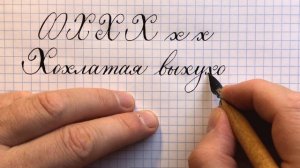 Х Х Х х х
Хохлатая выхухо